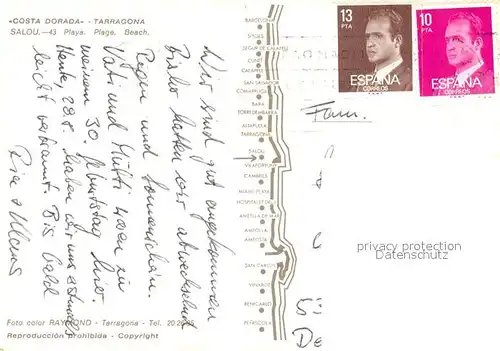 «COSTA DORADA» - TARRAGONA
SALOU.—43 Playa. Plage. Beach.
Wir sind gut angekommen
Bisher hatten wir abwechselnd
Regen und Sonnenschein.
Vati und Mutti waren zu
meinem 30. Geburtstag hier.
Heute, 28.5. haben wir uns erstmals
leicht verbrannt. Bis bald
Foto color RAYMOND - Tarragona - Tel. 20
Reproducción prohibida - Copyright
BARCELONA
SITGES
CUNIT
CALAFELL
SAN SALVADOR
COMARRUGA
BARA
TORREDEMBARRA
ALTAFULLA
TARRAGONA
SALOU
VILAFORTUNY
CAMBRILS
MIAMI PLAYA
HOSPITALET
AMETLLA DE MAR
AMPOLLA
AMPOSTA
SAN CARLOS
VINAROZ
BENICARLO
PEÑISCOLA
13
PTA
ESPAÑA
CORREOS
10
PTA
ESPAÑA
CORREOS
Fam.
privacy protection
AnsichtskartenVersand
De